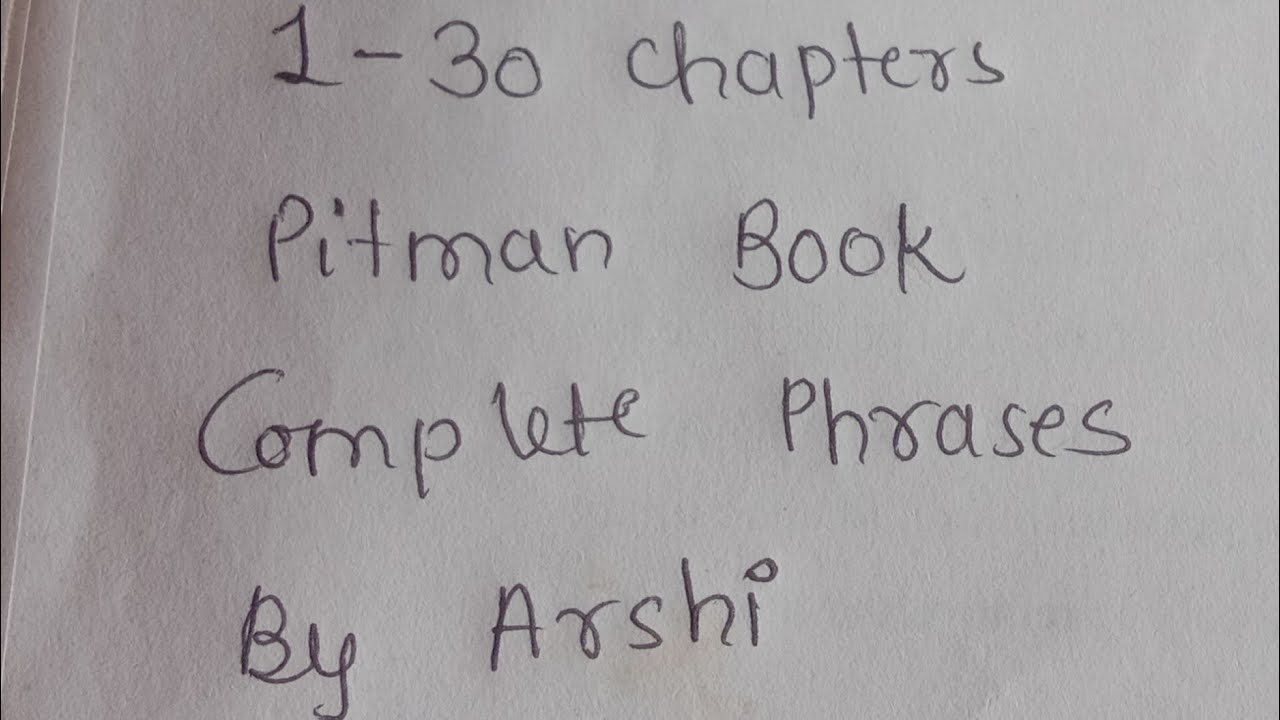 1-30 chapters
Pitman Book
Complete Phrases
By Arshi